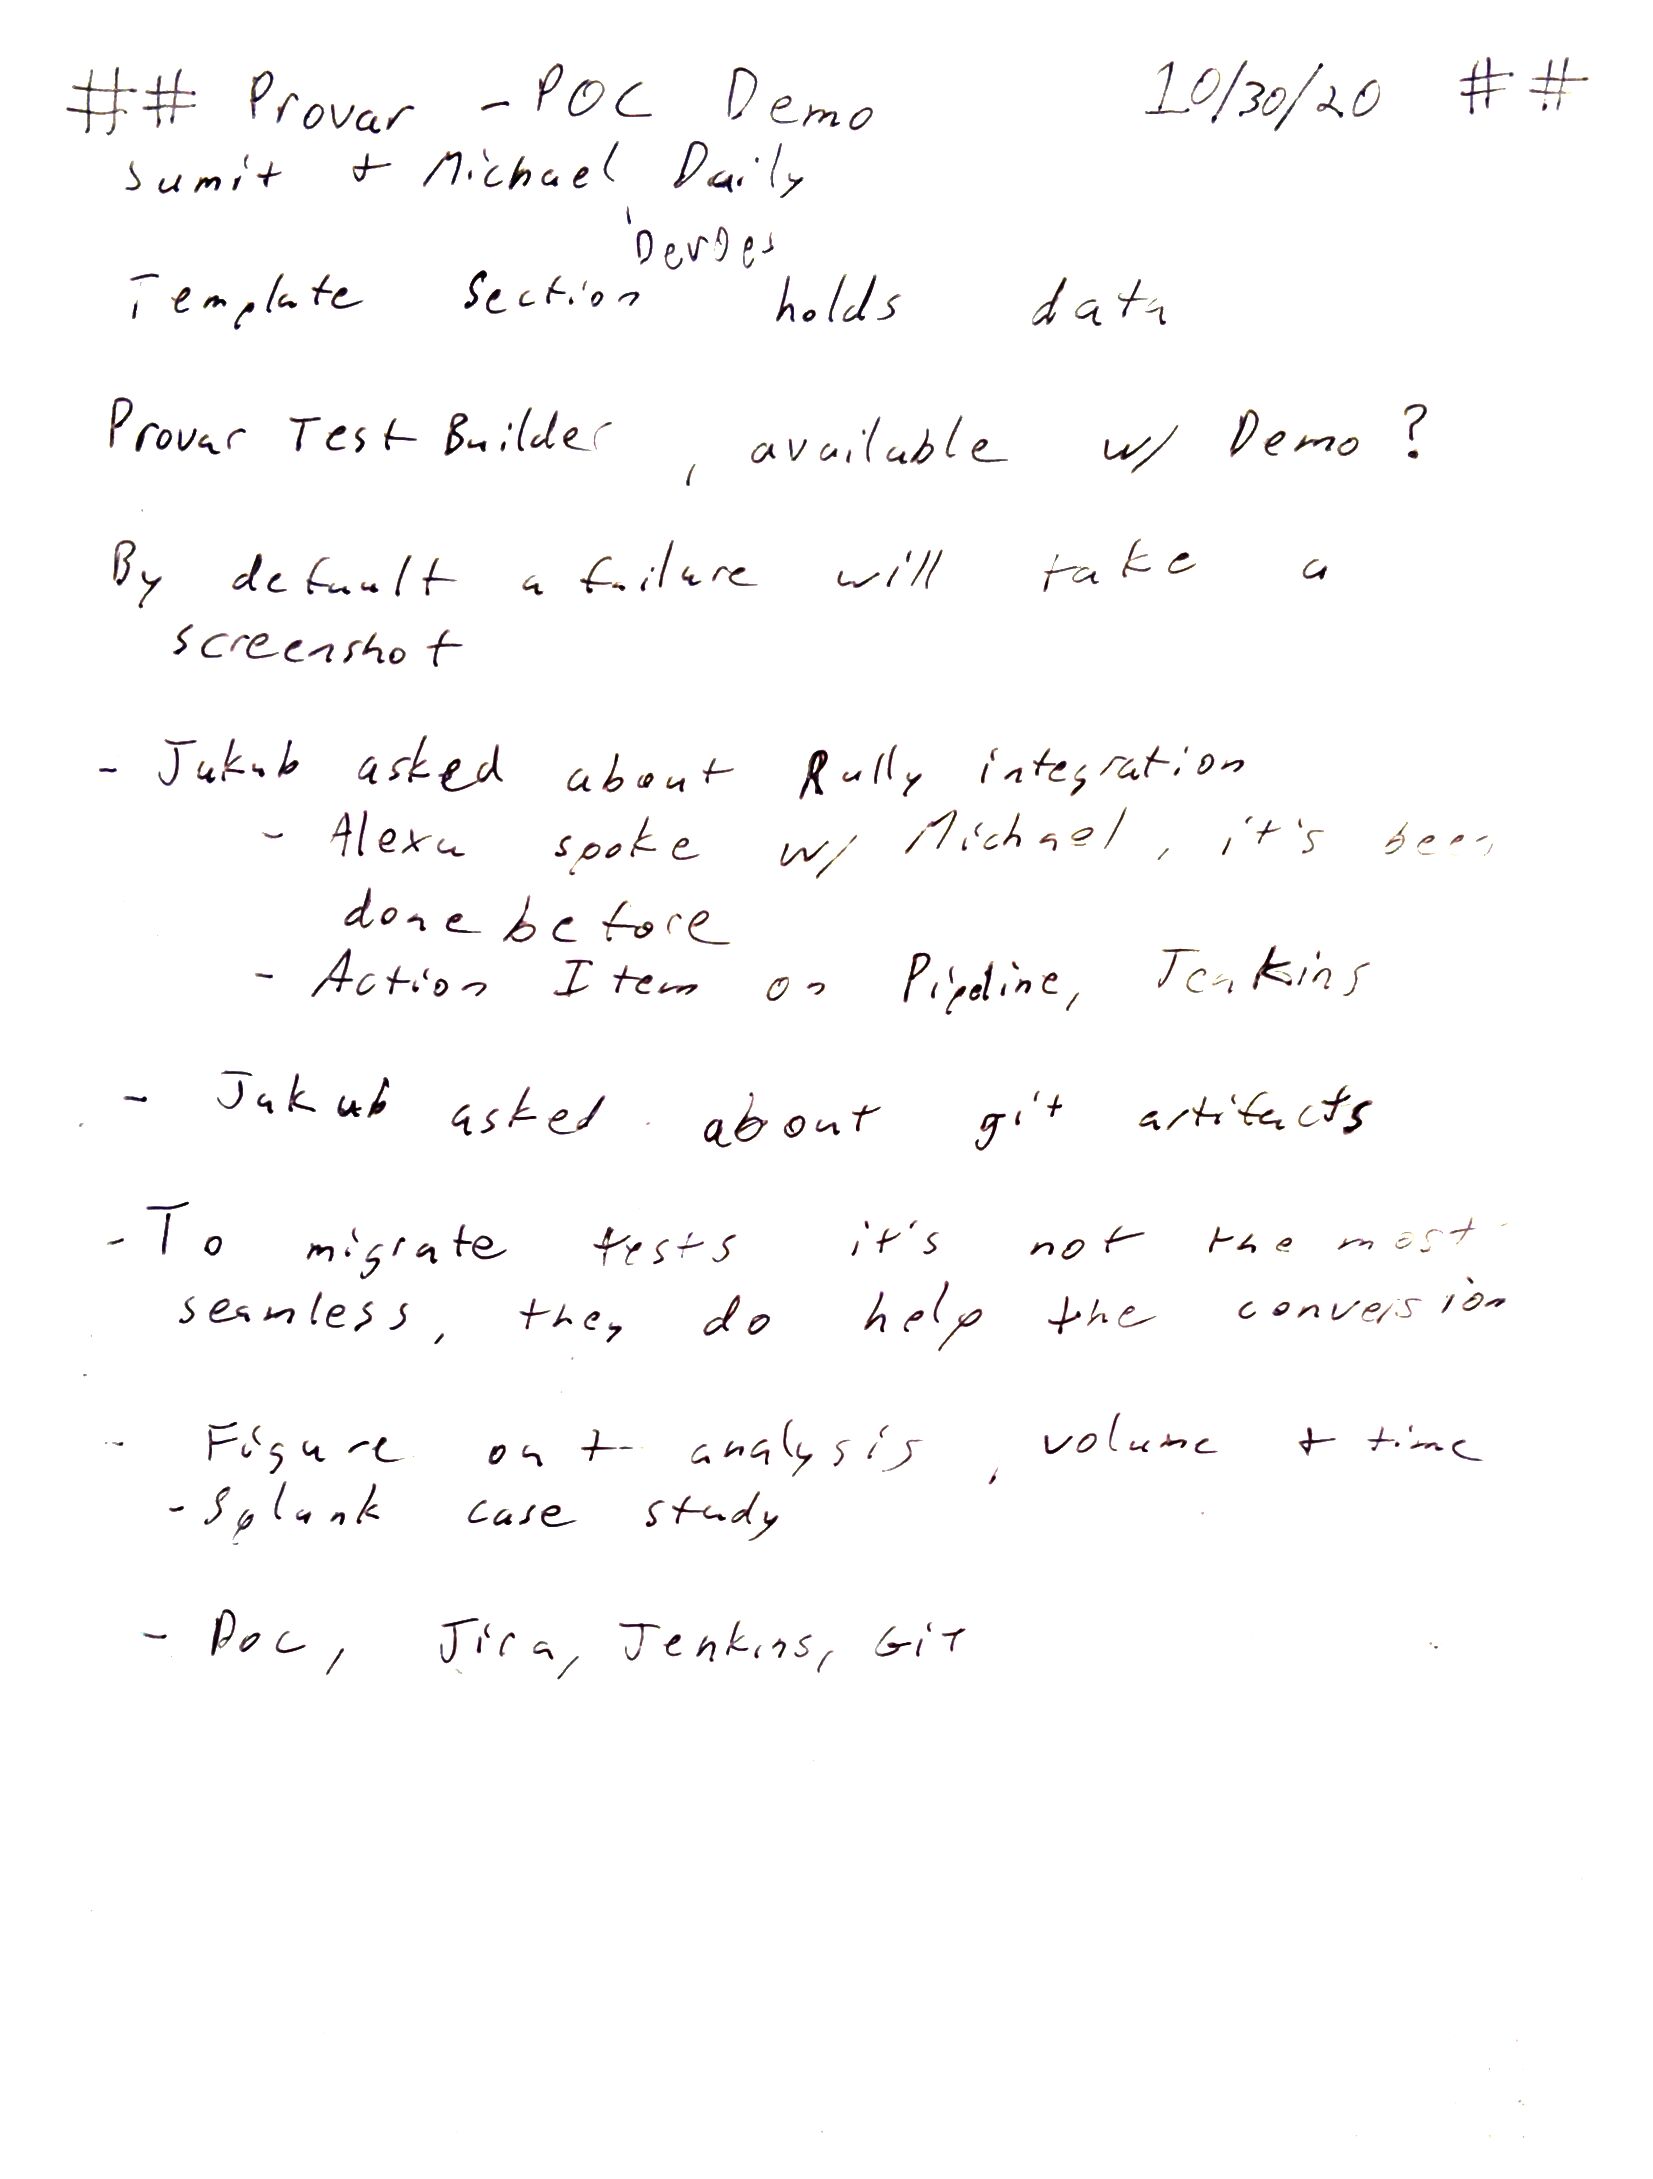 ## Provar - POC Demo 10/30/20 ##
Sumit + Michael Daily
DevDes
Template Section holds data
Provar Test Builder, available w/ Demo?
By default a failure will take a
screenshot
- Jakub asked about Rally integration
- Alexa spoke w/ Michael, it's been
done before
- Action Item on Pipeline, Jenkins
- Jakub asked about git artifacts
- To migrate tests it's not the most
seamless, they do help the conversion
- Figure out analysis, volume + time
- Splunk case study
- Doc, Jira, Jenkins, Git